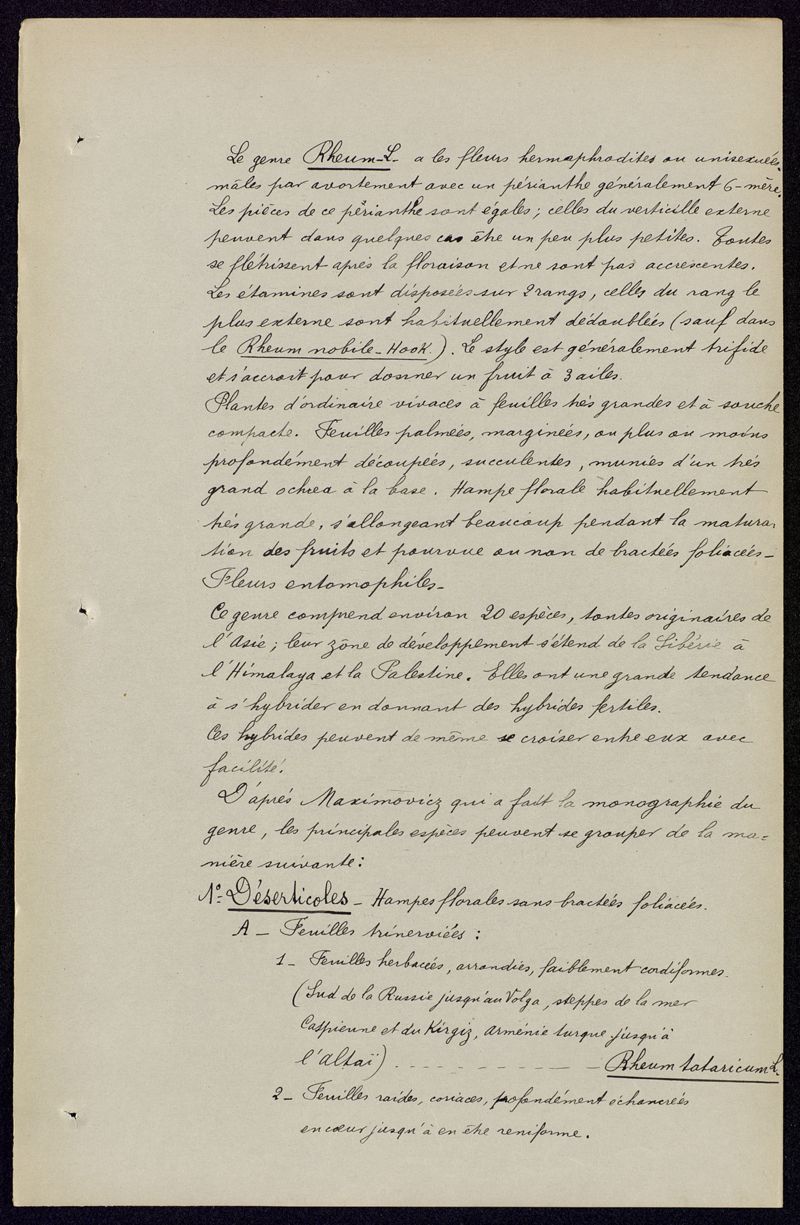 Le genre Rheum-L- a les fleurs hermaphrodites ou unisexuées
mâles par avortement avec un périanthe généralement 6-mère.
Les pièces de ce périanthe sont égales; celles du verticille externe
peuvent dans quelques cas être un peu plus petites. Toutes
se flétrissent après la floraison et ne sont pas accrescentes.
Les étamines sont disposées sur 2 rangs, celles du rang le
plus externe sont habituellement dédoublées (sauf dans
le Rheum nobile-Hook.). Le style est généralement trifide
et s'accroit pour donner un fruit à 3 ailes.
Plantes d'ordinaire vivaces à feuilles très grandes et à souche
compacte. Feuilles palmées, marginées, ou plus ou moins
profondément découpées, succulentes, munies d'un très
grand ochrea à la base. Hampe florale habituellement
très grande, s'allongeant beaucoup pendant la matura-
tion des fruits et pourvue ou non de bractées foliacées-
Fleurs entomophiles-
Ce genre comprend environ 20 espèces, toutes originaires de
l'Asie; leur zône de développement s'étend de la Sibérie à
l'Himalaya et la Palestine. Elles ont une grande tendance
à s'hybrider en donnant des hybrides fertiles.
Ces hybrides peuvent de même se croiser entre eux avec
facilité.
D'après Maximovicz qui a fait la monographie du
genre, les principales espèces peuvent se grouper de la ma-
nière suivante:
1º- Déserticoles - Hampes florales sans bractées foliacées.
A - Feuilles trinerviées:
1- Feuilles herbacées, arrondies, faiblement cordiformes.
(Sud de la Russie jusqu'au Volga, steppes de la mer
Caspienne et du Kirgiz, Arménie turque jusqu'à
l'Altaï) - - - - - - - - - - Rheum tataricum L.
2- Feuilles raides, coriaces, profondément échancrées
en cœur jusqu'à en être reniforme.